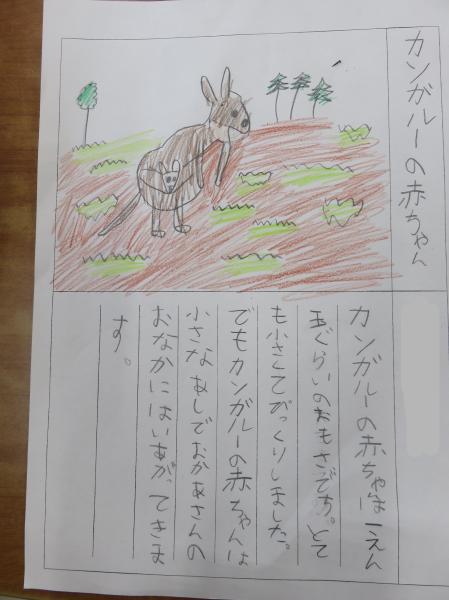 カンガルーの赤ちゃん
カンガルーの赤ちゃは一えん
玉ぐらいのおもさです。とて
も小さくてびっくりしました。
でもカンガルーの赤ちゃんは
小さなあしでおかあさんの
おなかにはいあがってきま
す。